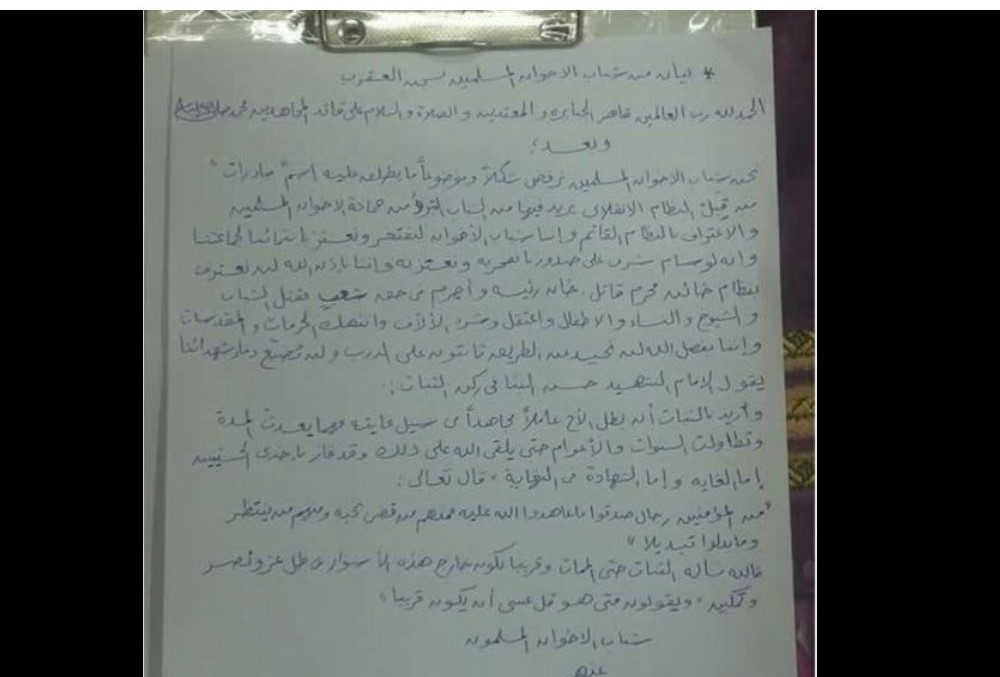 * بيان من شباب الاخوان المسلمين بسجن العقرب
الحمد لله رب العالمين قاهر الجبابرة والمعتدين والصلاة والسلام على قائد المجاهدين محمد صلى الله عليه وسلم
وبعد؛
نحن شباب الاخوان المسلمين نرفض شكلاً وموضوعاً ما يطلق عليه اسم "مبادرات"
من قِبَل النظام الانقلابى يريد فيها من الشباب التبرؤ من جماعة الاخوان المسلمين
والاعتراف بالنظام القائم وإننا شباب الأخوان لنفتخر ونعتز بانتمائنا لجماعتنا
وانه لوسام شرف على صدورنا نفخر به ونعتز به وإننا بإذن الله لن نعترف
بنظام خائن مجرم قاتل. خان رئيسه وأجرم فى حق شعبٍ فقتل الشباب
والشيوخ والنساء والاطفال واعتقل وشرد الألاف وانتهك الحرمات والمقدسات
وإننا بفضل الله لن نحيد عن الطريق ثابتون على الدرب ولن نضيع دماء شهدائنا
يقول الإمام الشهيد حسن البنا فى ركن الثبات :.
وأريد بالثبات أن يظل الأخ عاملاً مجاهداً فى سبيل غايته مهما بعدت المدة
وتطاولت السنوات والأعوام حتى يلقى الله على ذلك وقد فاز بإحدى الحسنيين
إما الغايه وإما الشهادة فى النهاية، قال تعالى :
"من المؤمنين رجال صدقوا ما عاهدوا الله عليه فمنهم من قضى نحبه ومنهم من ينتظر
وما بدلوا تبديلا"
فالله نسأله الثبات حتى الممات وقريبا نكون خارج هذه الأسوار فى ظل عز ونصر
وتمكين "ويقولون متى هو قل عسى أن يكون قريبا"
شباب الاخوان المسلمون